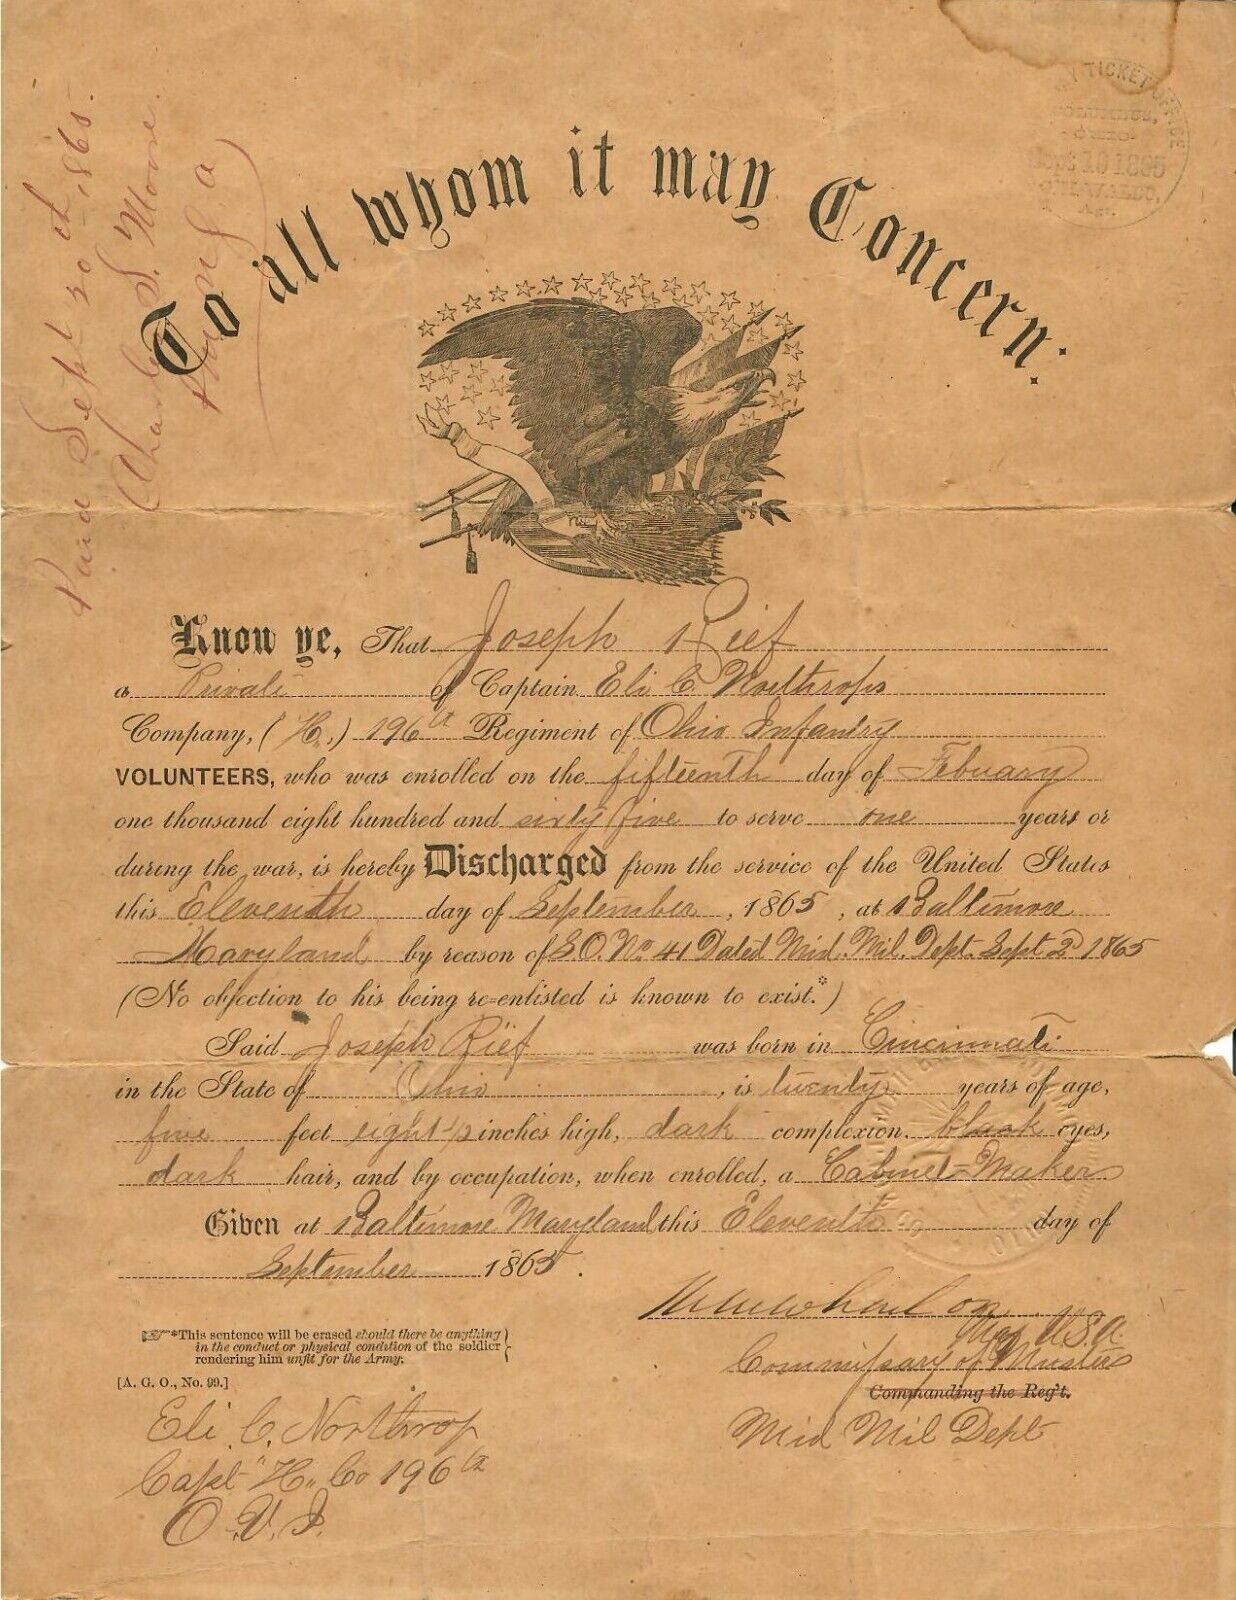 Paid Sept 20th 1865.
Charles S. Moore
TICKET OFFICE
10 1865
To all whom it may Concern:
Know ye, That Joseph Rief
a Private of Captain Eli C Northrops
Company, (H.) 196th Regiment of Ohio Infantry
VOLUNTEERS, who was enrolled on the fifteenth day of Febuary
one thousand eight hundred and sixty five to serve one years or
during the war, is hereby Discharged from the service of the United States
this Eleventh day of September, 1865, at Baltimore
Maryland by reason of S.O. No 41 Dated Mid. Mil. Dept. Sept 2d 1865
(No objection to his being re-enlisted is known to exist.*)
Said Joseph Rief was born in Cincinnati
in the State of Ohio, is twenty years of age,
five feet eight 1/2 inches high, dark complexion, black eyes,
dark hair, and by occupation, when enrolled, a Cabinet-Maker
Given at Baltimore Maryland this Eleventh day of
September 1865.
Maj U.S.A.
Commissary of Musters
Commanding the Reg't.
Mid Mil Dept
☞*This sentence will be erased should there be anything
in the conduct or physical condition of the soldier
rendering him unfit for the Army.
[A. G. O., No. 99.]
Eli C. Northrop
Capt "H" Co 196th
O.V.I.